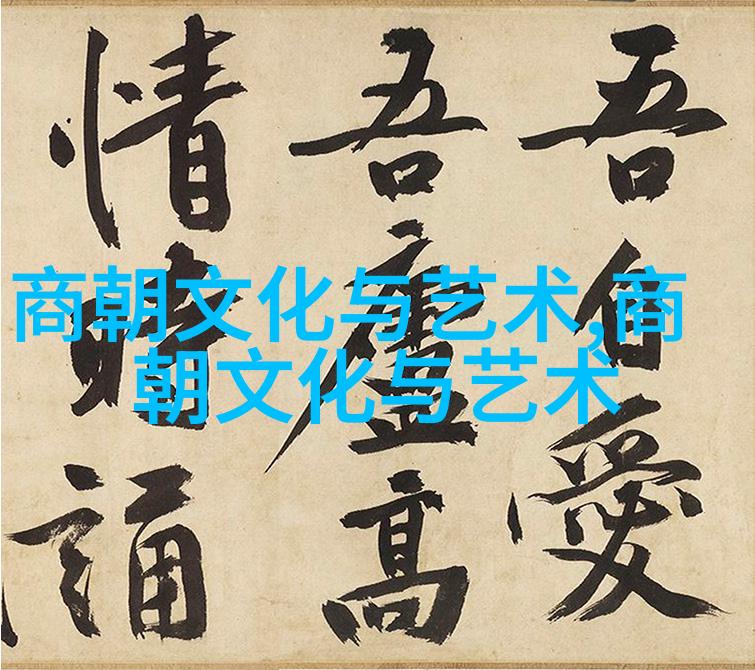 商朝文化与艺术,商
朝文化与艺术
吾自愛
吾廬高
情時誦